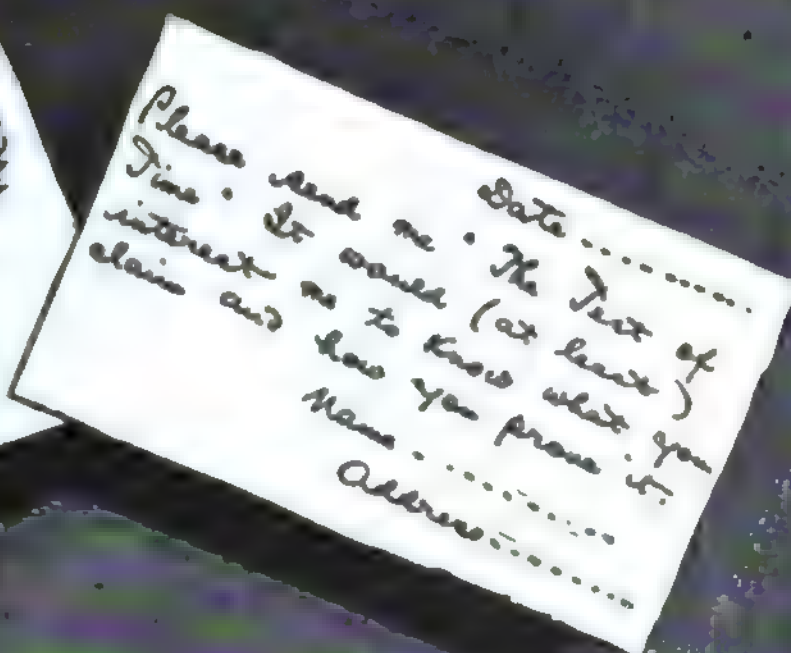 Date ..........
Please send me . The Test of
Time . It would (at least)
interest me to know what you
claim and how you prove it.
Name ..........
Address ..........